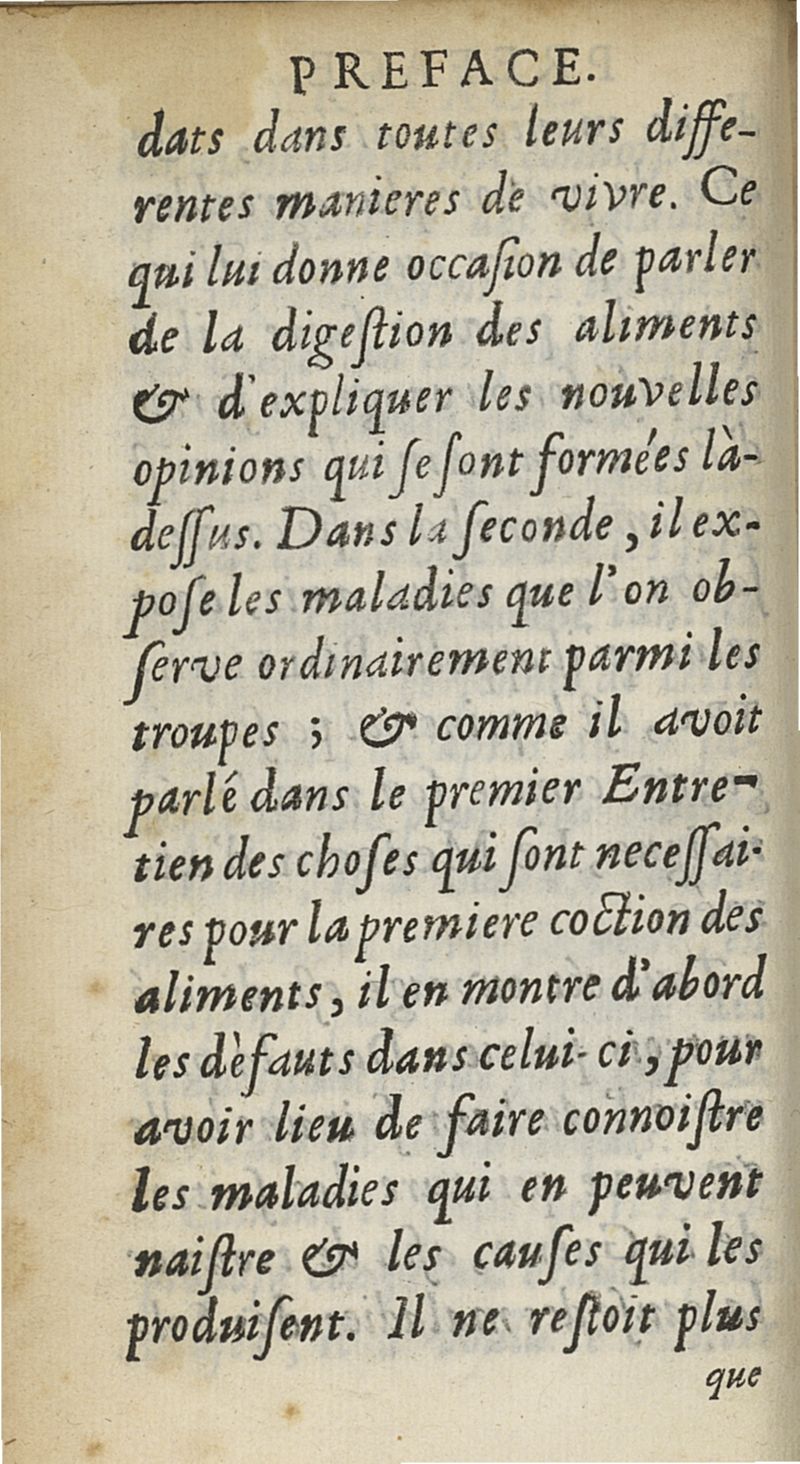 PREFACE.
dats dans toutes leurs diffe-
rentes manieres de vivre. Ce
qui lui donne occaſion de parler
de la digeſtion des aliments
& d'expliquer les nouvelles
opinions qui ſe ſont formées là-
deſſus. Dans la ſeconde, il ex-
poſe les maladies que l'on ob-
ſerve ordinairement parmi les
troupes ; & comme il avoit
parlé dans le premier Entre-
tien des choſes qui ſont neceſſai-
res pour la premiere coction des
aliments, il en montre d'abord
les dèfauts dans celui-ci, pour
avoir lieu de faire connoiſtre
les maladies qui en peuvent
naiſtre & les cauſes qui les
produiſent. Il ne reſtoit plus
que